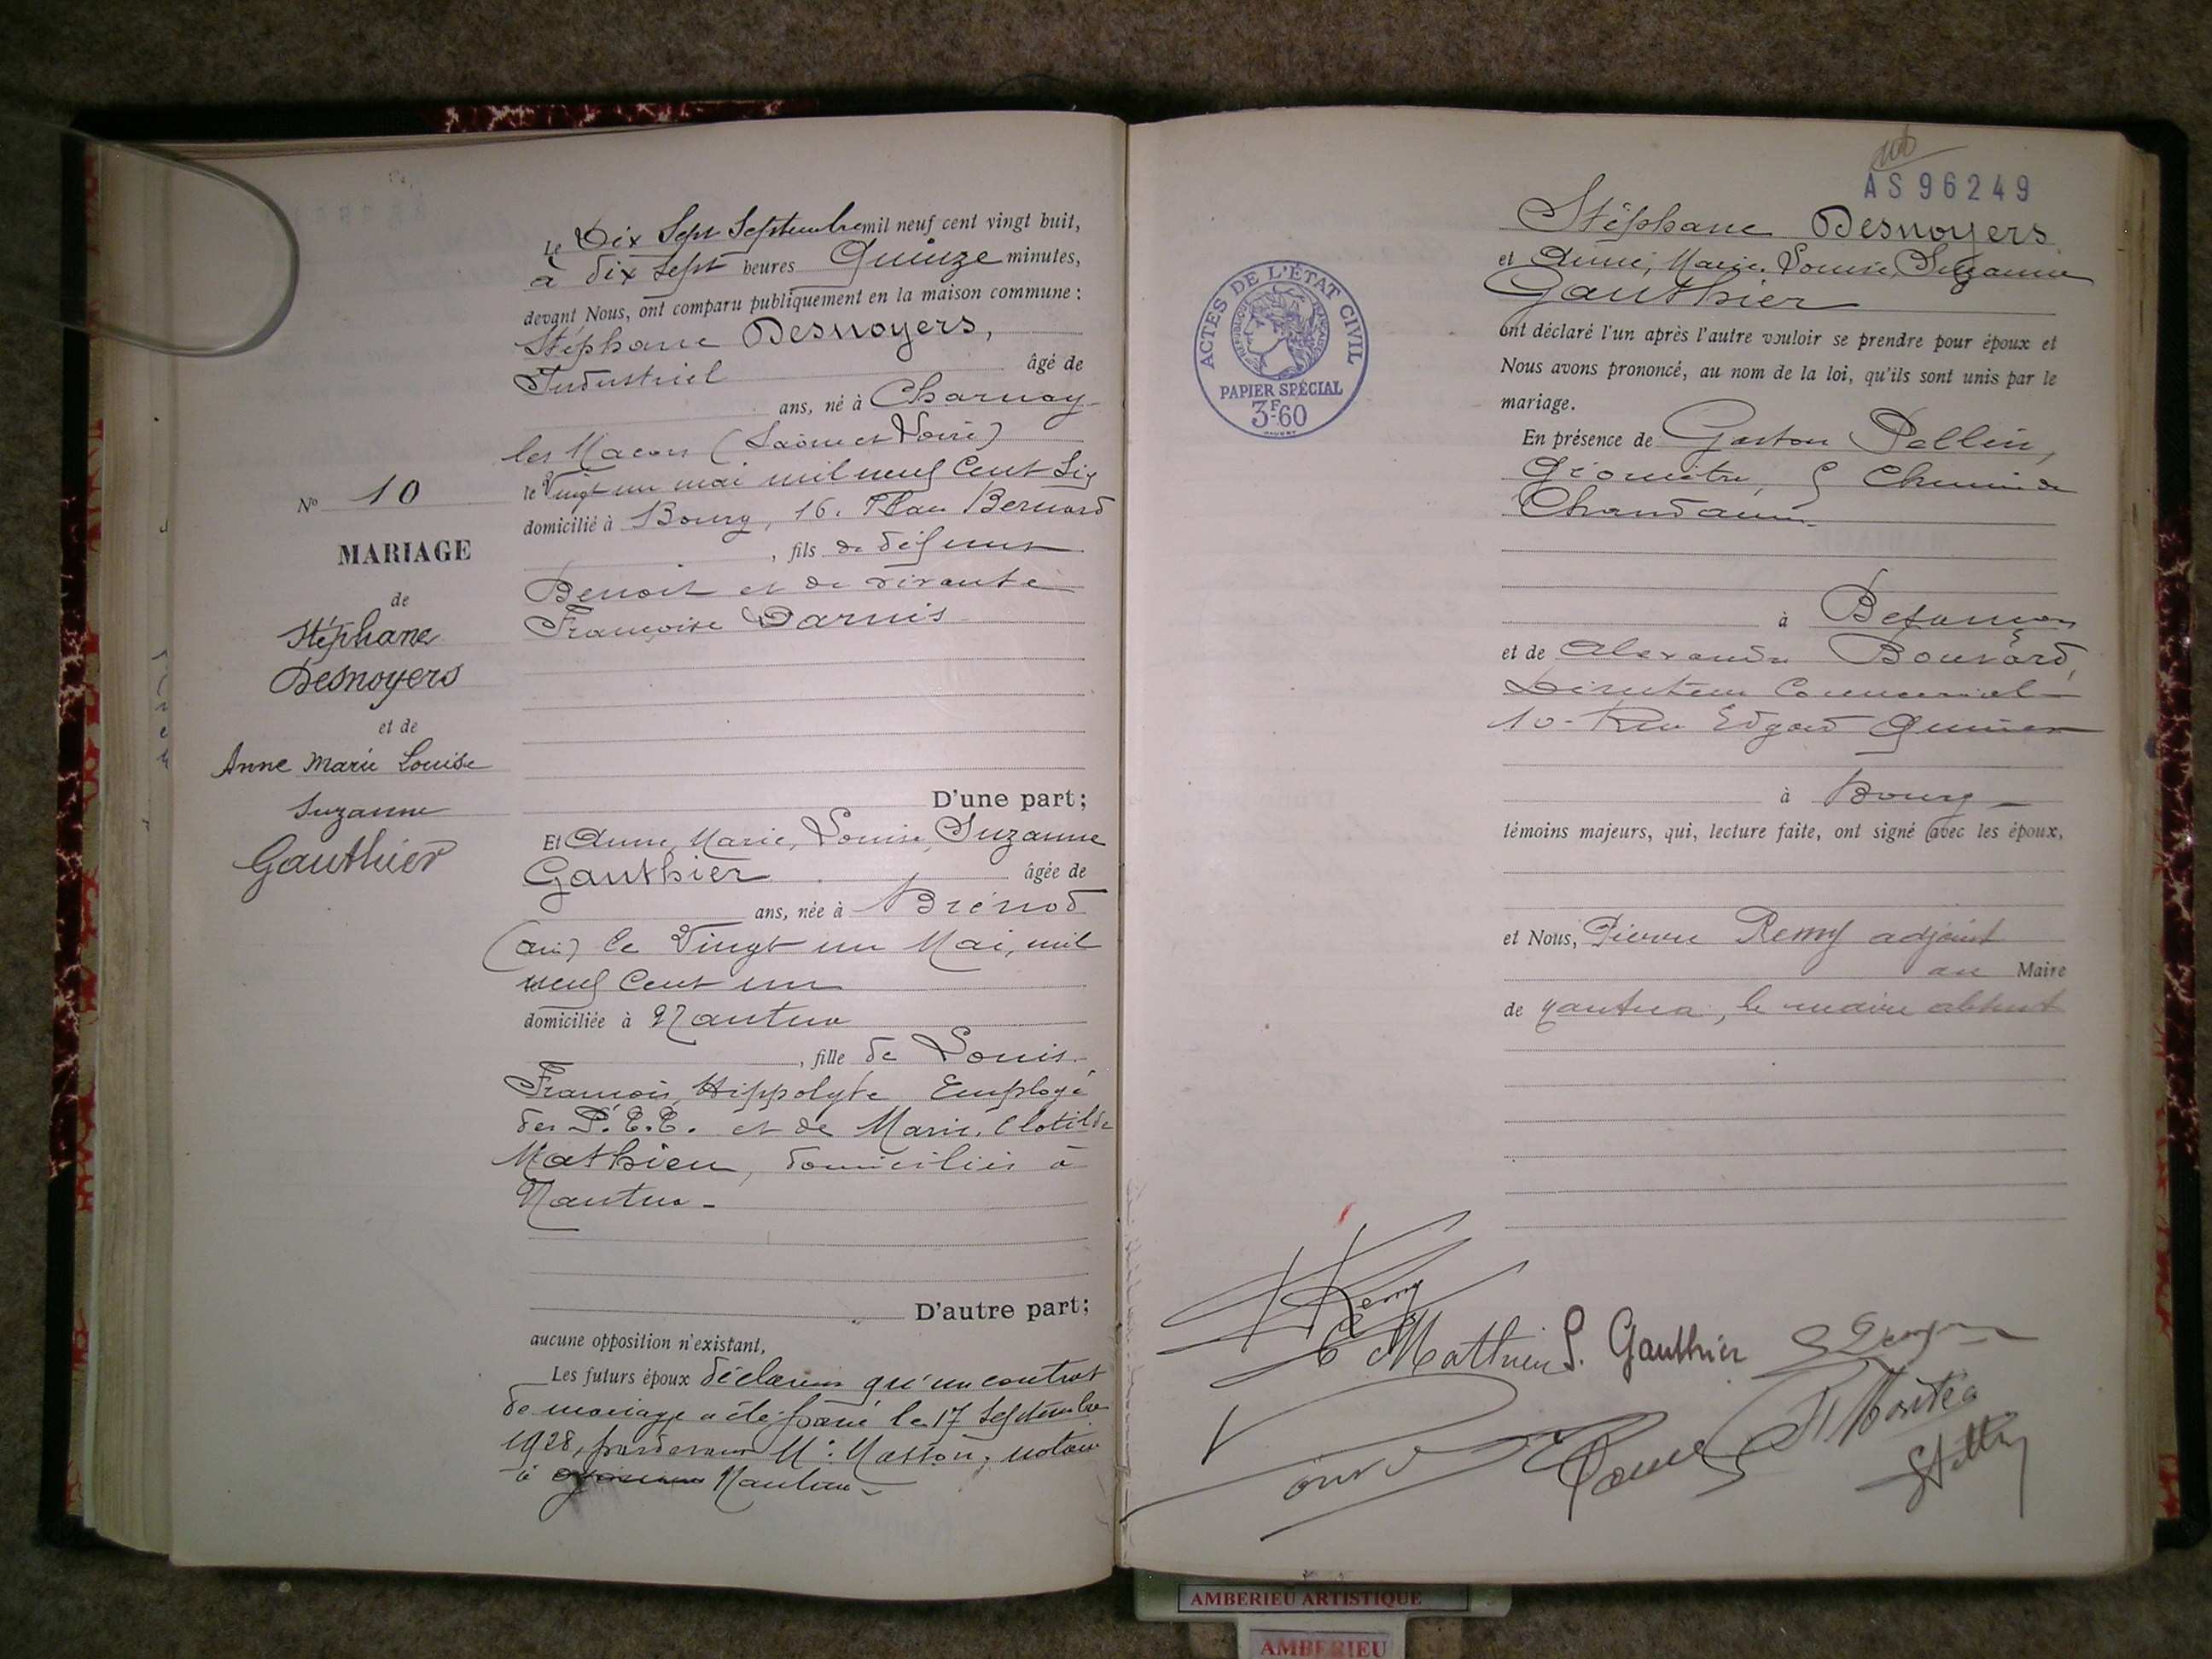 Le Dix Sept Septembre mil neuf cent vingt huit,
à dix sept heures Quinze minutes,
devant Nous, ont comparu publiquement en la maison commune :
Stéphane Desnoyers,
Industriel âgé de
ans, né à Charnay
les Macon (Saône et Loire)
le Vingt un mai mil neuf Cent Six
domicilié à Bourg, 16. Place Bernard
, fils de défunt
Benoit et de vivante
Françoise Darnis
D'une part;
Nº 10
MARIAGE
de
Stéphane
Desnoyers
et de
Anne Marie Louise
Suzanne
Gauthier
Et Anne, Marie, Louise, Suzanne
Gauthier âgée de
ans, née à Brénod
(Ain) le Vingt un Mai, mil
neuf Cent un
domiciliée à Nantua
, fille de Louis
François, Hippolyte Employé
des P.T.T. et de Marie, Clotilde
Mathieu, domiciliés à
Nantua -
D'autre part;
aucune opposition n'existant,
Les futurs époux déclarent qu'un contrat
de mariage a été passé le 17 Septembre
1928, pardevant Me Masson, notaire
à Nantua -
AS 96249
ACTES DE L'ÉTAT CIVIL
RÉPUBLIQUE FRANÇAISE
PAPIER SPÉCIAL
3F.60
Stéphane Desnoyers
et Anne, Marie, Louise, Suzanne
Gauthier
ont déclaré l'un après l'autre vouloir se prendre pour époux et
Nous avons prononcé, au nom de la loi, qu'ils sont unis par le
mariage.
En présence de Gaston Pellin,
Géomètre, Chemin de
à Besançon
et de Alexandre Bouvard,
Directeur Commercial
10 - Rue Edgard Quinet
à Bourg -
témoins majeurs, qui, lecture faite, ont signé avec les époux,
et Nous, Pierre Remy adjoint
au Maire
de Nantua, le maire absent
Remy
C Mathieu S. Gauthier
AMBERIEU ARTISTIQUE
AMBERIEU